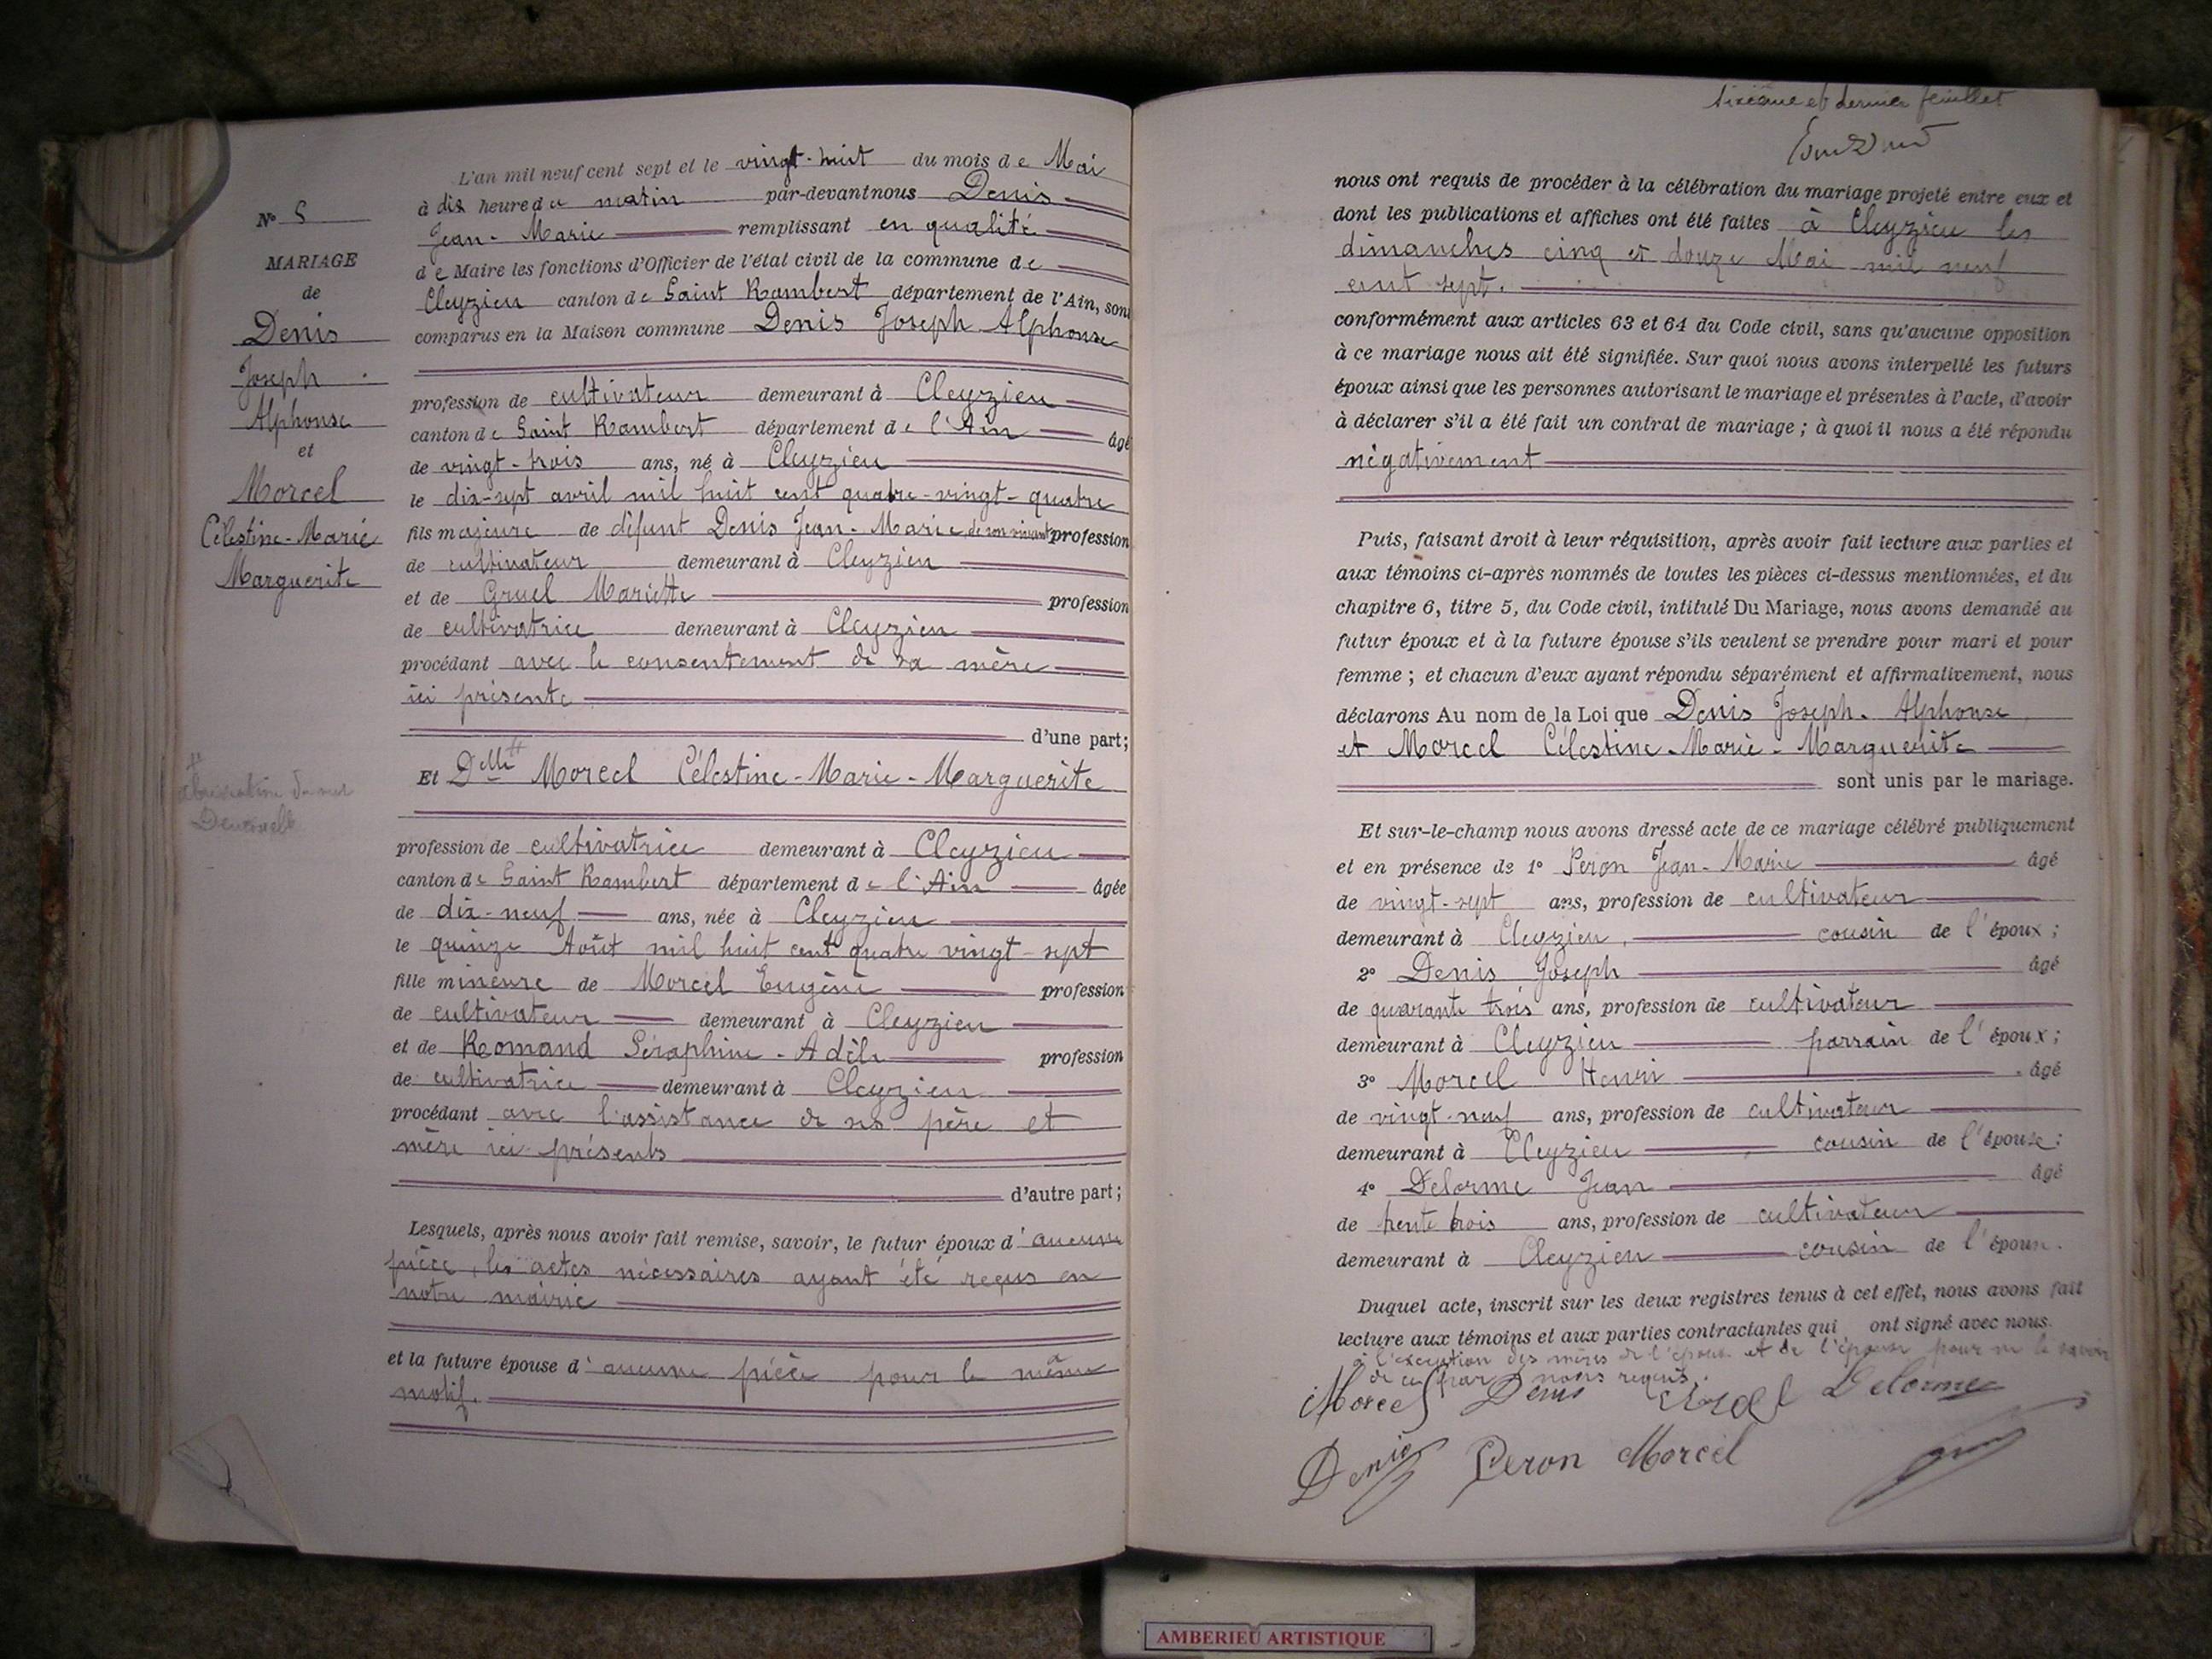 N° 5
MARIAGE
de
Denis
Joseph
Alphonse
et
Morcel
Célestine-Marie
Marguerite
L'an mil neuf cent sept et le vingt-huit du mois de Mai
à dix heure du matin par-devant nous Denis
Jean-Marie remplissant en qualité
de Maire les fonctions d'Officier de l'état civil de la commune de
Cleyzieu canton de Saint Rambert département de l'Ain, sont
comparus en la Maison commune Denis Joseph Alphonse
profession de cultivateur demeurant à Cleyzieu
canton de Saint Rambert département de l'Ain âgé
de vingt-trois ans, né à Cleyzieu
le dix-sept avril mil huit cent quatre-vingt-quatre
fils majeure de défunt Denis Jean-Marie de son vivant profession
de cultivateur demeurant à Cleyzieu
et de Gruel Mariette profession
de cultivatrice demeurant à Cleyzieu
procédant avec le consentement de sa mère
ici présente
d'une part;
Et Delle Morcel Célestine-Marie-Marguerite
profession de cultivatrice demeurant à Cleyzieu
canton de Saint Rambert département de l'Ain âgée
de dix-neuf ans, née à Cleyzieu
le quinze Août mil huit cent quatre vingt-sept
fille mineure de Morcel Eugène profession
de cultivateur demeurant à Cleyzieu
et de Romand Séraphine-Adèle profession
de cultivatrice demeurant à Cleyzieu
procédant avec l'assistance de ses père et
mère ici présents
d'autre part;
Lesquels, après nous avoir fait remise, savoir, le futur époux d'aucune
pièce, les actes nécessaires ayant été reçus en
notre mairie
et la future épouse d'aucune pièce pour le même
motif.
dernier feuillet
nous ont requis de procéder à la célébration du mariage projeté entre eux et
dont les publications et affiches ont été faites à Cleyzieu les
dimanches cinq et douze Mai mil neuf
cent sept.
conformément aux articles 63 et 64 du Code civil, sans qu'aucune opposition
à ce mariage nous ait été signifiée. Sur quoi nous avons interpellé les futurs
époux ainsi que les personnes autorisant le mariage et présentes à l'acte, d'avoir
à déclarer s'il a été fait un contrat de mariage ; à quoi il nous a été répondu
négativement
Puis, faisant droit à leur réquisition, après avoir fait lecture aux parties et
aux témoins ci-après nommés de toutes les pièces ci-dessus mentionnées, et du
chapitre 6, titre 5, du Code civil, intitulé Du Mariage, nous avons demandé au
futur époux et à la future épouse s'ils veulent se prendre pour mari et pour
femme ; et chacun d'eux ayant répondu séparément et affirmativement, nous
déclarons Au nom de la Loi que Denis Joseph-Alphonse
et Morcel Célestine-Marie-Marguerite
sont unis par le mariage.
Et sur-le-champ nous avons dressé acte de ce mariage célébré publiquement
et en présence de 1° Peron Jean-Marie âgé
de vingt-sept ans, profession de cultivateur
demeurant à Cleyzieu, cousin de l'époux ;
2° Denis Joseph âgé
de quarante trois ans, profession de cultivateur
demeurant à Cleyzieu parrain de l'époux ;
3° Morcel Henri âgé
de vingt-neuf ans, profession de cultivateur
demeurant à Cleyzieu cousin de l'épouse ;
4° Delorme Jean âgé
de trente trois ans, profession de cultivateur
demeurant à Cleyzieu cousin de l'époux.
Duquel acte, inscrit sur les deux registres tenus à cet effet, nous avons fait
lecture aux témoins et aux parties contractantes qui ont signé avec nous.
à l'exception des mères de l'époux et de l'épouse pour ne le savoir
de ce par nous requis.
Morcel Denis Delorme
Denis Peron Morcel
AMBERIEU ARTISTIQUE